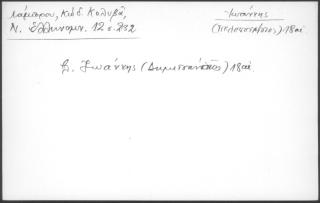 Λάμπρου, Κώδ. Κολυβᾶ,
Ν. Ἑλληνομν. 12 σ. 232
Ἰωάννης
(Πελοποννήσιος) 18 αἰ
Σ. Ἰωάννης (Δημητσάνιτος) 18 αἰ.